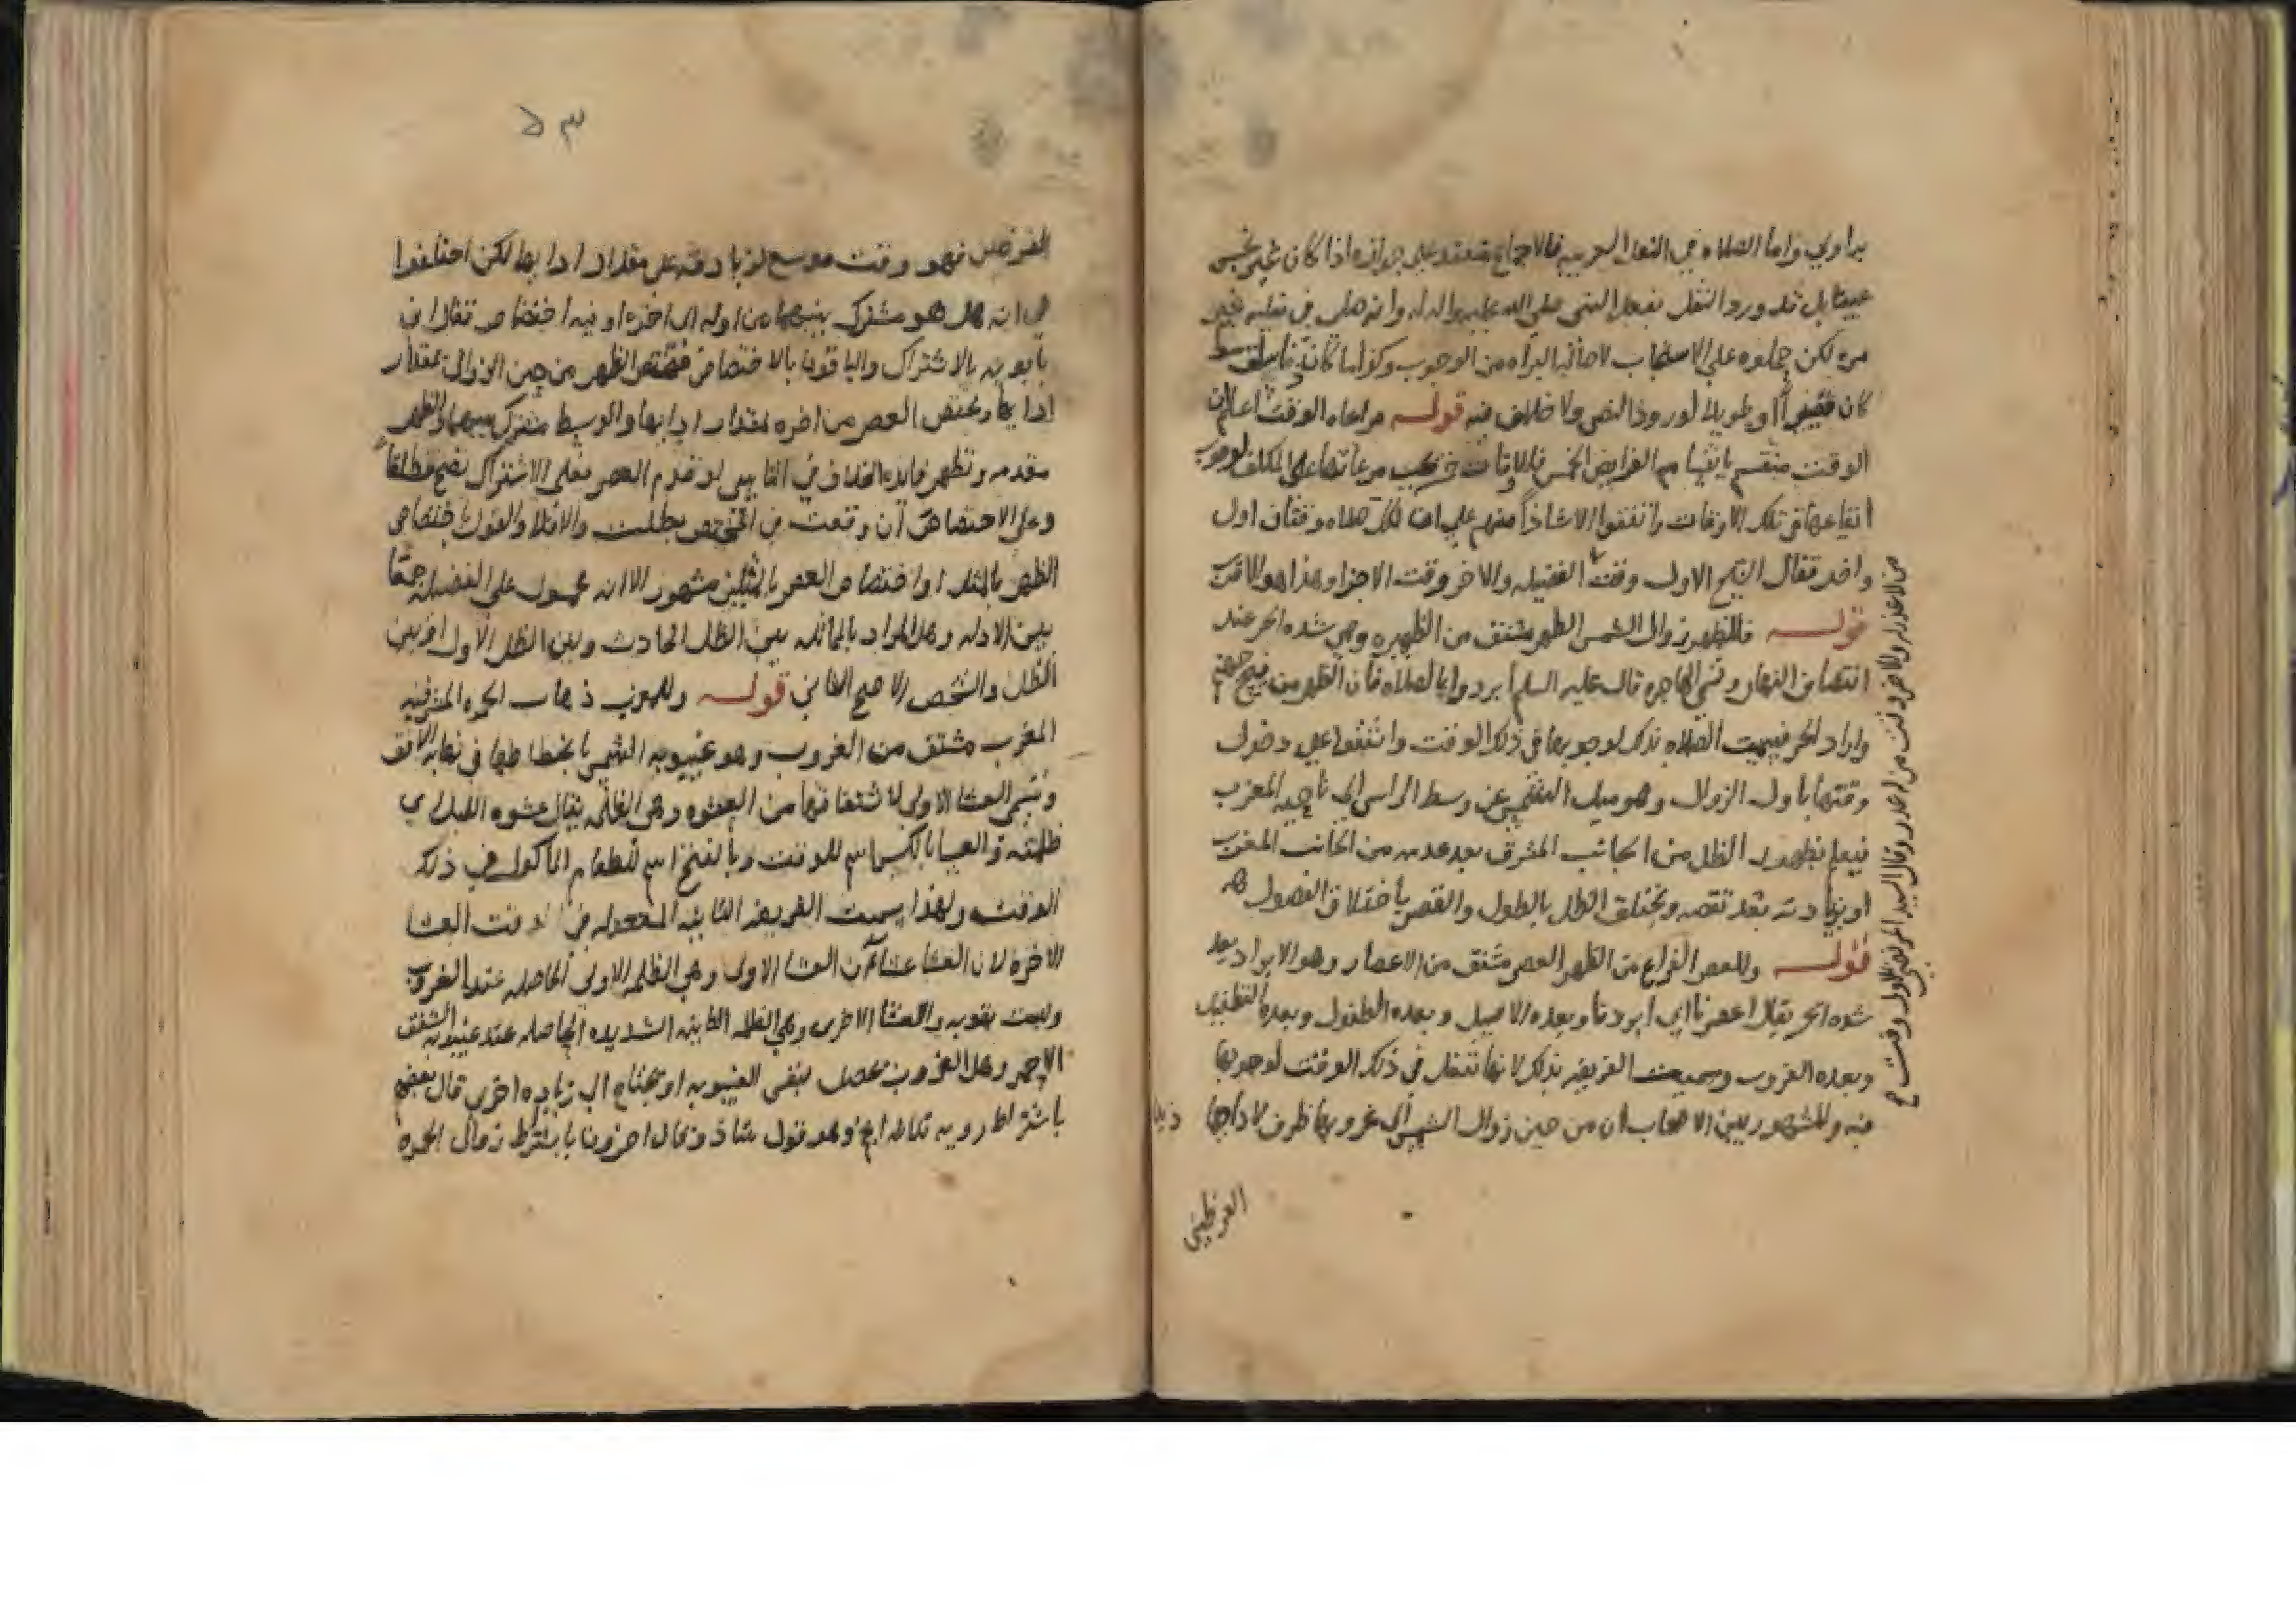 يراوبي واما الصلاه في النعل العربيه فالاجماع منعقد على جوازه اذا كان غير نجس
عينا بل قد ورد النقل بفعل النبي صلى الله عليه واله له وانه صلى في نعليه غير
مره لكن حملوه على الاستحباب لاصاله البراه من الوجوب وكذا ما كان
كان قصيرا او طويلا لورود النص ولا خلاف فيه قوله مراعاه الوقت اعلم ان
الوقت منقسم بانقسام الفرايض الخمس فالاوقات خمس يجب مراعاتها على المكلف لوجوب
ايقاعها في تلك الاوقات واتفقوا الا شاذا منهم على ان لكل صلاه وقتان اول
واخر فقال الشيخ الاول وقت الفضيله والاخر وقت الاجزا وهذا هو الاقرب
قوله فللظهر زوال الشمس الظهر مشتق من الظهيره وهي شده الحر عند
انتصاف النهار وتسمى الهاجره قال عليه السلم ابردوا بالصلاه فان الظهر من فيح جهنم
واراد الحر فسميت الصلاه بذلك لوجوبها في ذلك الوقت واتفقوا على دخول
وقتها باول الزوال وهو ميل الشمس عن وسط الراس الى ناحيه المغرب
فيعلم بظهور الظل من الجانب المشرق بعد عدمه من الجانب المغرب
او بزيادته بعد نقصه ويختلف الظل بالطول والقصر باختلاف الفصول
قوله وللعصر الفراغ من الظهر العصر مشتق من الاعصار وهو الابراد بعد
شده الحر يقال اعصرنا اي ابردنا وبعده الاصيل وبعده الطفول وبعده التطفيل
وبعده الغروب وسميت الفريضه بذلك لانها تفعل في ذلك الوقت لوجوبها
فيه والمشهور بين الاصحاب ان من حين زوال الشمس الى غروبها ظرف لاداها
من لا عذر له والاخر وقت من له عذر وقال السيد المرتضى الاول وقت
٥٣
الفرضين فهو وقت موسع لزيادته على مقدار ادابها لكن اختلفوا
في انه هل هو مشترك بينهما من اوله الى اخره او فيه اختصاص فقال ابن
بابويه بالاشتراك والباقون بالاختصاص فتختص الظهر من حين الزوال بمقدار
ادايها ويختص العصر من اخره بمقدار ادايها والوسط مشترك بينهما والظهر
مقدمه وتظهر فايده الخلاف في الناسي لو قدم العصر فعلى الاشتراك تصح مطلقا
وعلى الاختصاص ان وقعت في المختص بطلت والا فلا والقول باختصاص
الظهر بالمثل او اختصاص العصر بالمثلين مشهور الا انه محمول على الفضيله جمعا
بين الادله وهل المراد بالمماثله بين الظل الحادث وبين الظل الاول او بين
الظل والشخص الاصح الثاني قوله وللمغرب ذهاب الحمره المشرقيه
المغرب مشتق من الغروب وهو غيبوبه الشمس بانحطاطها في نهايه الافق
وتسمى العشا الاولى لاشتقاقها من العشوه وهي الظلمه يقال عشوه الليل اي
ظلمته والعشا بالكسر اسم للوقت وبالفتح اسم للطعام الماكول في ذلك
الوقت ولهذا سميت الفريضه الثانيه المجعوله في الوقت العشا
الاخره لان العشا عشاان العشا الاولى وهي الظلمه الاولى الحاصله عند الغروب
وليست بقويه والعشا الاخرى وهي الظلمه الثانيه الشديده الحاصله عند غيبوبه الشفق
الاحمر وهل الغروب يحصل بنفس الغيبوبه او يحتاج الى زياده اخرى قال بعضهم
باشتراط رويه ثلاثه انجم وهو قول شاذ وقال اخرون باشتراط زوال الحمره